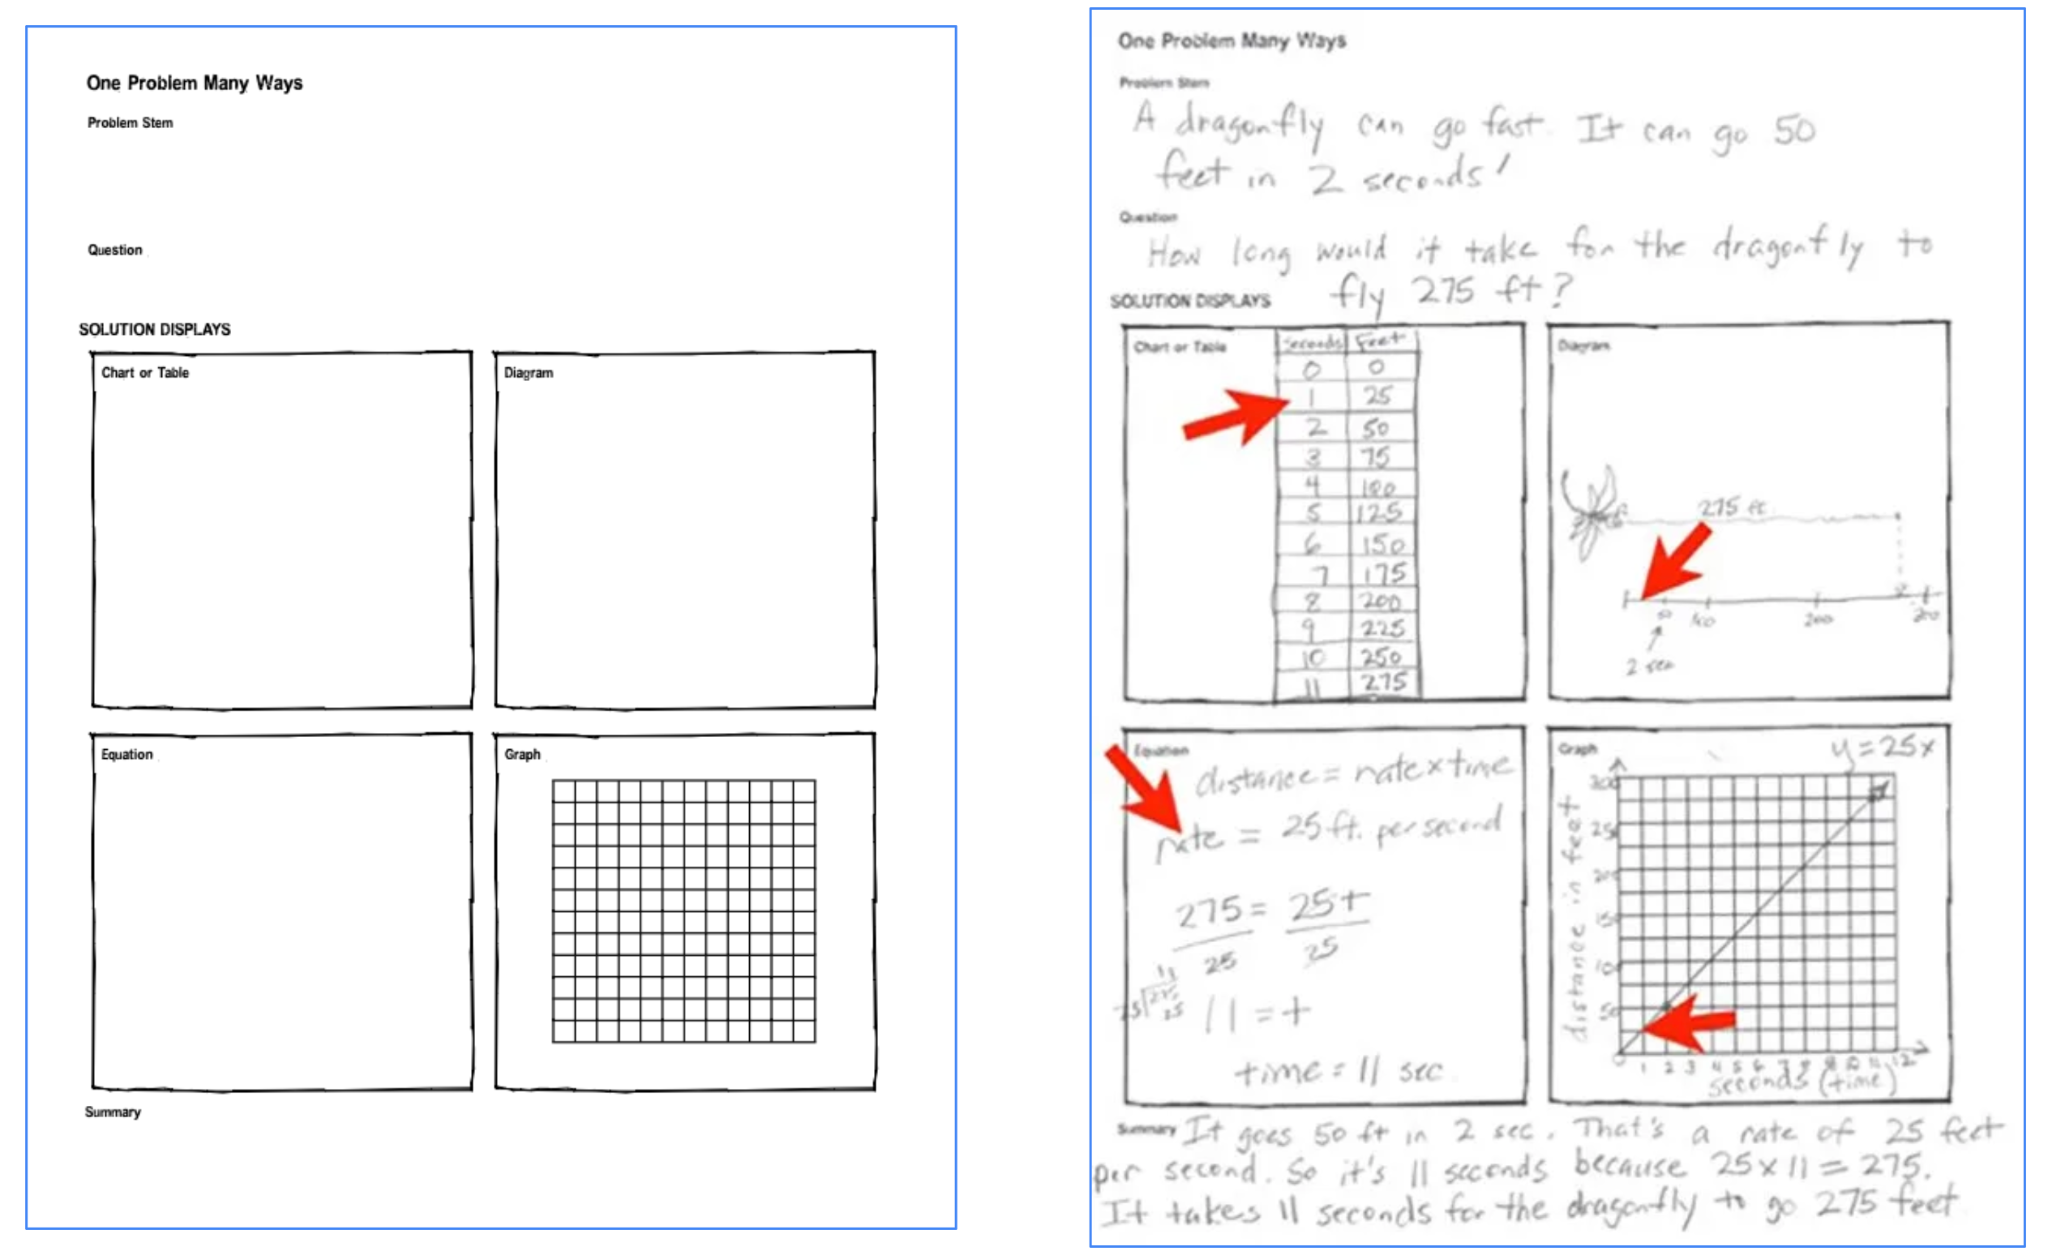 One Problem Many Ways
Problem Stem
Question
SOLUTION DISPLAYS
Chart or Table
Diagram
Equation
Graph
Summary
One Problem Many Ways
Problem Stem
A dragonfly can go fast. It can go 50
feet in 2 seconds!
Question
How long would it take for the dragonfly to
fly 275 ft?
SOLUTION DISPLAYS
Chart or Table
seconds Feet
0 0
1 25
2 50
3 75
4 100
5 125
6 150
7 175
8 200
9 225
10 250
11 275
Diagram
275 ft
50 100 200
2 sec
Equation
distance = rate x time
rate = 25 ft. per second
275 = 25t
25 25
11
25 275
25
11 = t
time = 11 sec
Graph
y = 25x
distance in feet
300
250
200
150
100
50
0 1 2 3 4 5 6 7 8 9 10 11 12
seconds (time)
Summary It goes 50 ft in 2 sec. That's a rate of 25 feet
per second. So it's 11 seconds because 25 x 11 = 275.
It takes 11 seconds for the dragonfly to go 275 feet